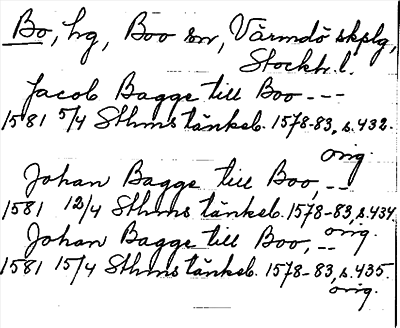 Bo, hg, Boo sn, Värmdö skplg,
Stockh. l.
Jacob Bagge till Boo ---
1581 5/4 Sthms tänkeb. 1578-83, s. 432.
orig.
Johan Bagge till Boo, --
1581 12/4 Sthms tänkeb. 1578-83, s. 434
orig.
Johan Bagge till Boo, --
1581 15/4 Sthms tänkeb. 1578-83, s. 435.
orig.